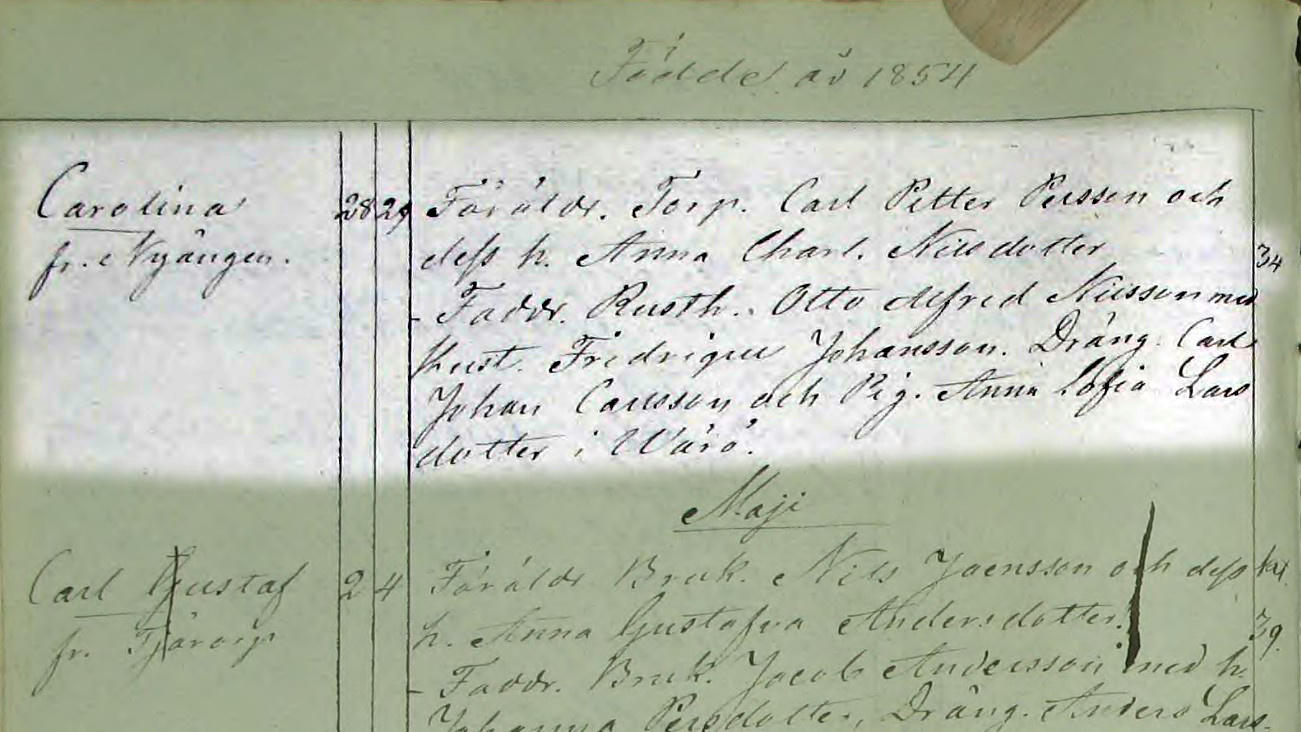 Födde år 1854
Carolina 28 29 Föräldr. Torp. Carl Petter Persson och
fr. Nyängen. dess h. Anna Charl. Nilsdotter 34
- Faddr. Rusth. Otto Alfred Nilsson med
hust. Fridrique Johansson. Dräng. Carl
Johan Carlsson och Pig. Anna Sofia Lars
dotter i Wärö.
Maji
Carl Gustaf 2 4 Föräldr Bruk. Nils Joensson och dess
fr. Tjärarp h. Anna Gustafva Andersdotter. 39.
- Faddr. Bruk. Jacob Andersson med h.
Johanna Persdotter, Dräng. Anders Lars-